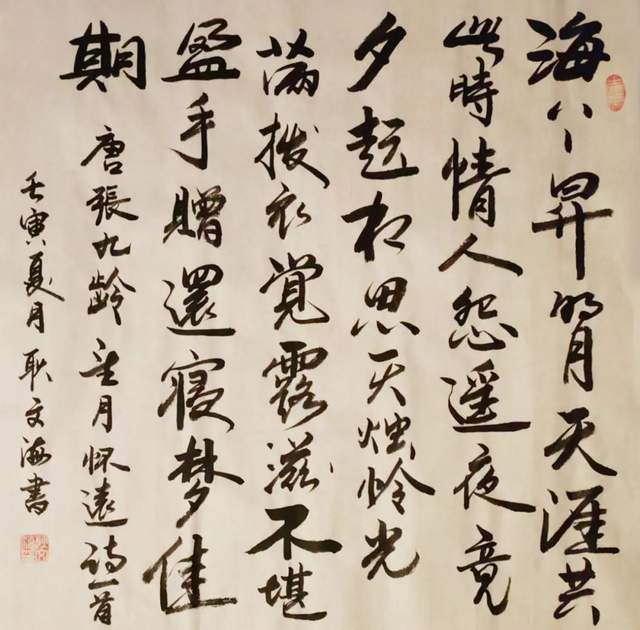 海上昇明月天涯共
此時情人怨遥夜竟
夕起相思灭烛怜光
满披衣覚露滋不堪
盈手贈還寝梦佳
期
唐張九齡望月怀遠詩一首
壬寅夏月耿文海書